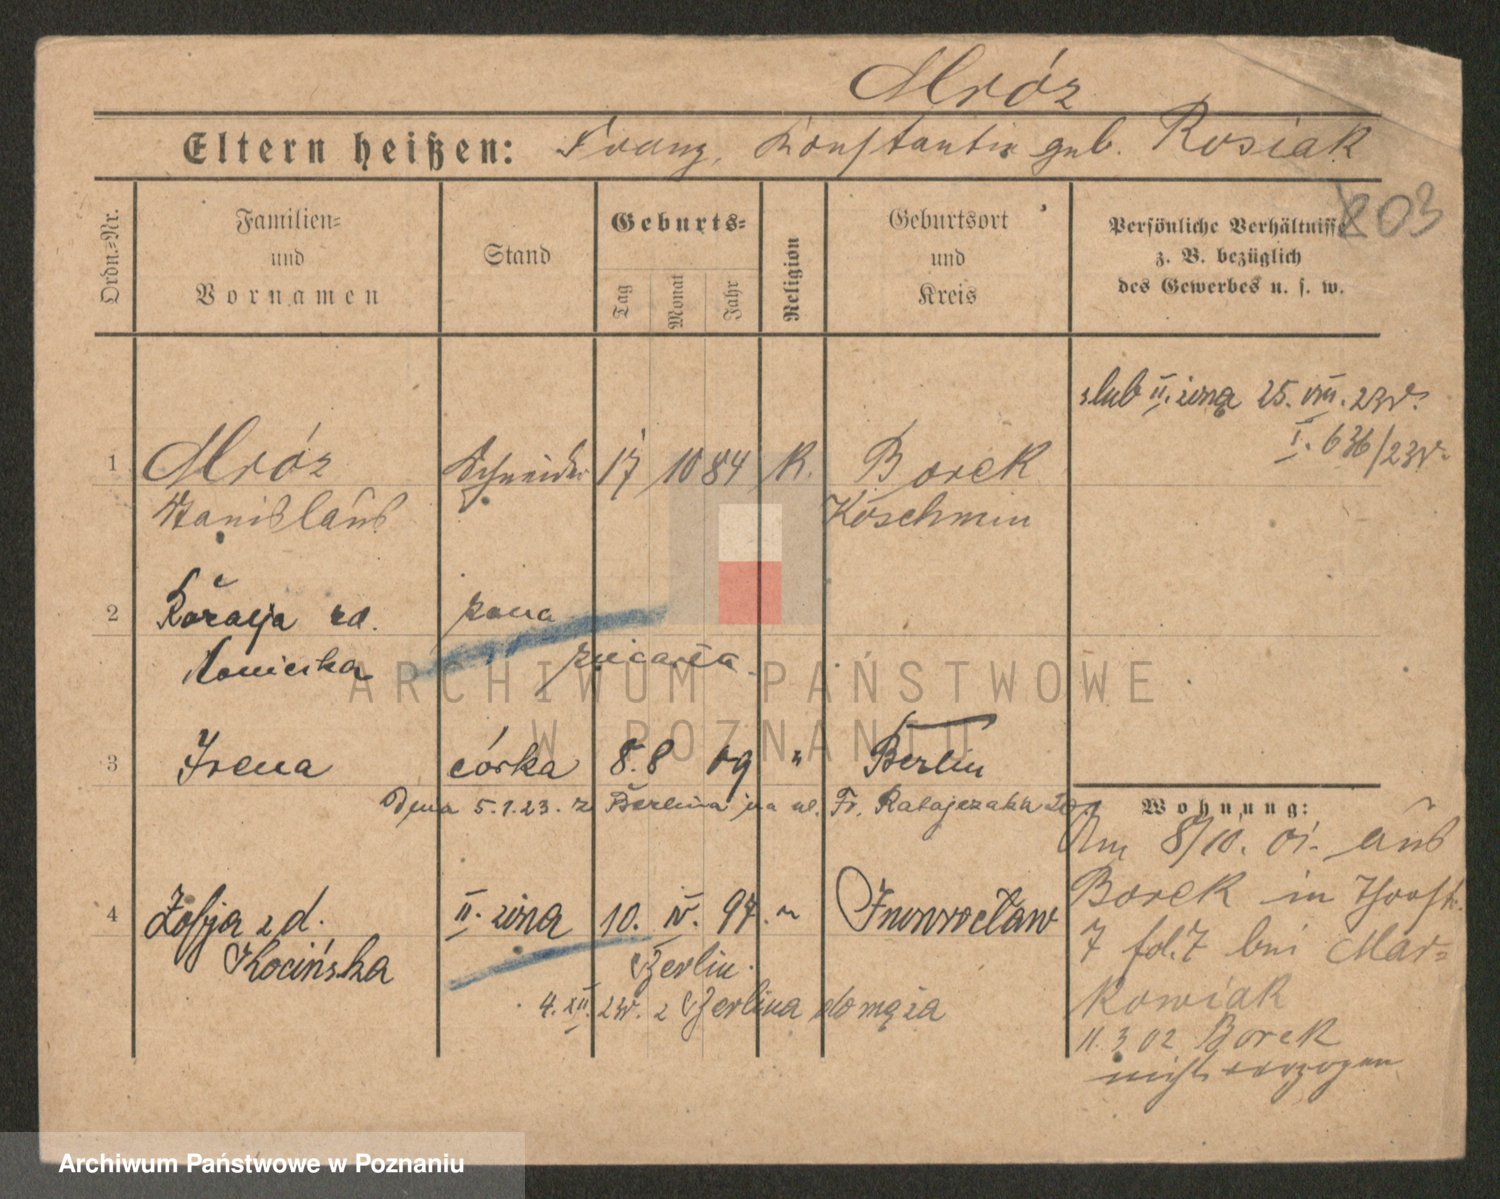 Mróz
Eltern heißen: Franz, Konstantin geb. Rosiak
203
Ordn.-Nr.
Familien-
und
Vornamen
Stand
Geburts-
Tag
Monat
Jahr
Religion
Geburtsort
und
Kreis
Persönliche Verhältnisse
z. B. bezüglich
des Gewerbes u. s. w.
ślub II. żoną 25. VIII. 23r.
I. 636/23r.
1 Mróz Schneider 17 10 84 K. Borek
Stanislaus Koschmin
2 rd. żona
3 Irena córka 8. 8 09 " Berlin
Dnia 5.1.23. z Berlina na ul. Fr. Ratajczaka
Wohnung:
Am 8/10. 01. aus
Borek in
7 bei Mar-
kowiak
11. 3 02 Borek
nicht verzogen
4 Zofja z d. II. żona 10. IV. 97. " Inowrocław
Kocińska Berlin.
4. XII. 23r. z Berlina do męża
ARCHIWUM PAŃSTWOWE
W POZNANIU
Archiwum Państwowe w Poznaniu